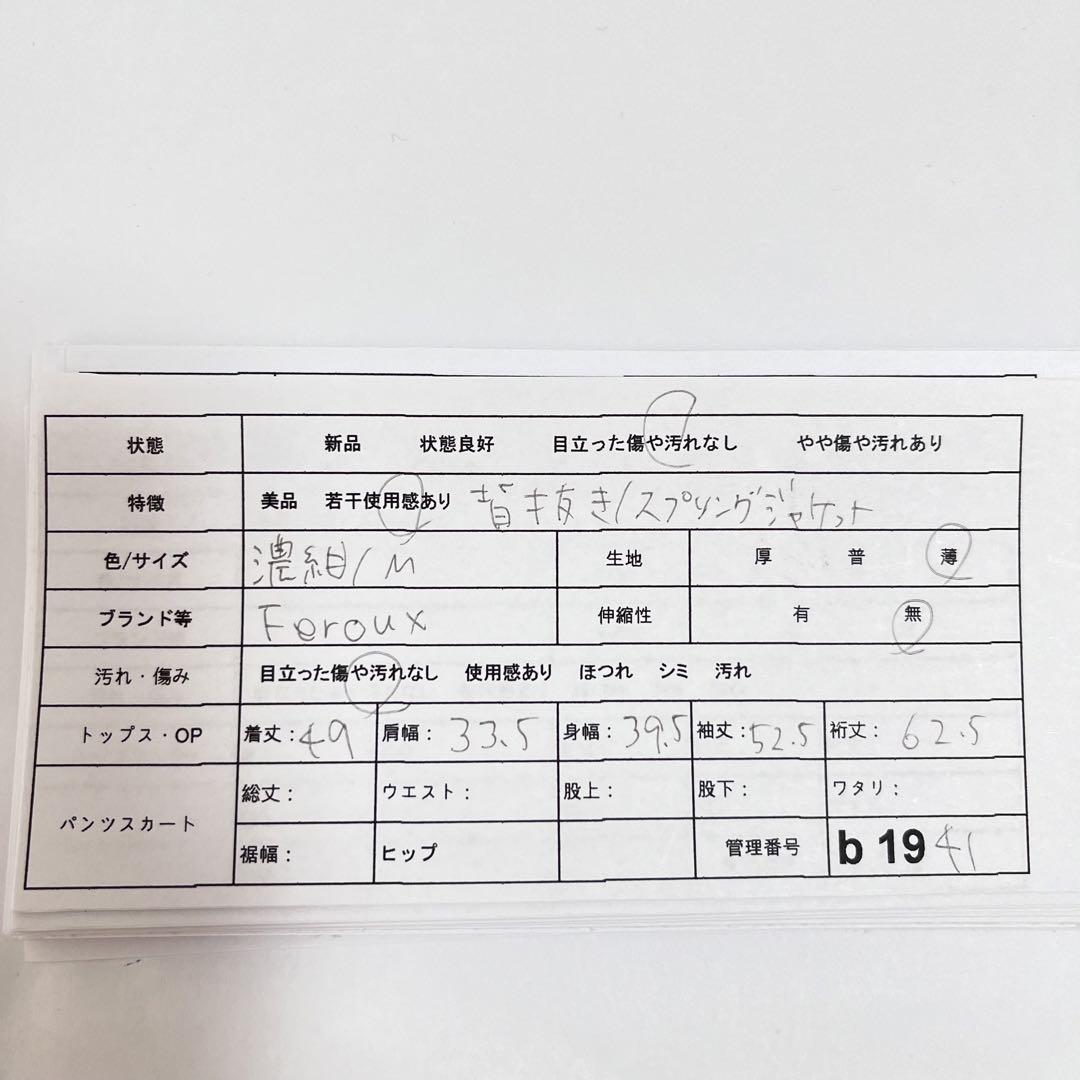 状態 新品 状態良好 目立った傷や汚れなし やや傷や汚れあり
特徴 美品 若干使用感あり 背抜き/スプリングジャケット
色/サイズ 濃紺/M 生地 厚 普 薄
ブランド等 Feroux 伸縮性 有 無
汚れ・傷み 目立った傷や汚れなし 使用感あり ほつれ シミ 汚れ
トップス・OP 着丈:49 肩幅:33.5 身幅:39.5 袖丈:52.5 裄丈:62.5
パンツスカート 総丈: ウエスト: 股上: 股下: ワタリ:
裾幅: ヒップ 管理番号 b 1941